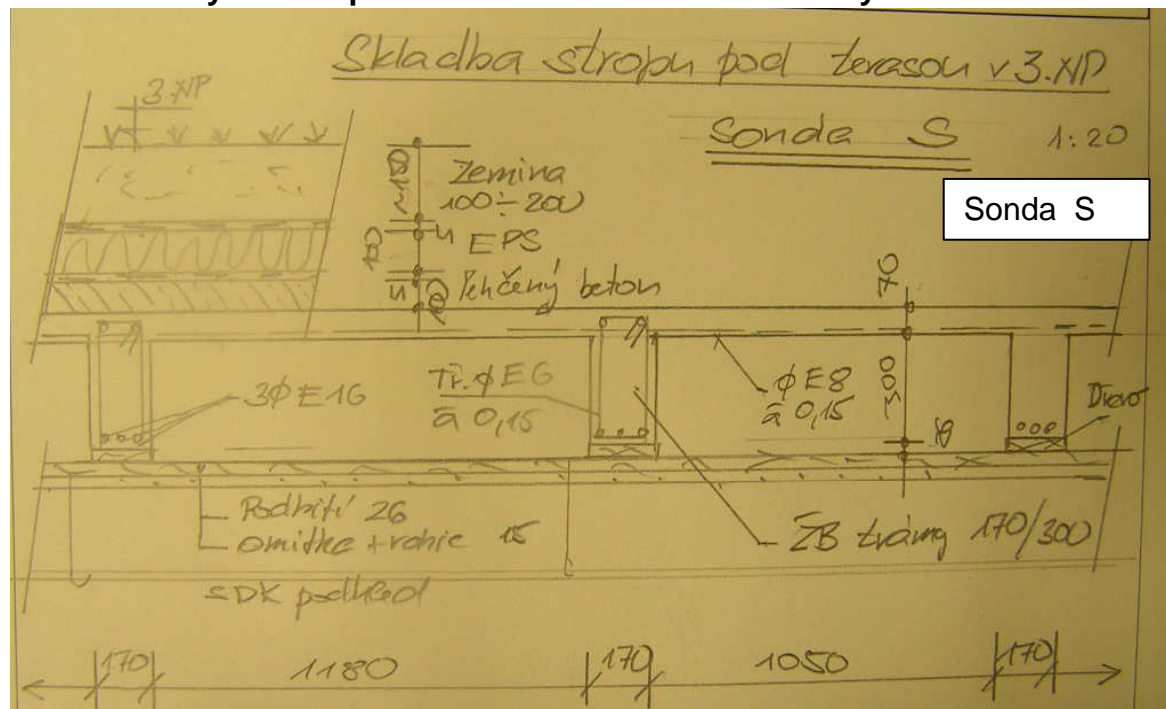 Skladba stropu pod terasou v 3.NP
Sonda S 1:20
Sonda S
3.NP
~150
Zemina
100÷200
5
100
EPS
5
Lehčený beton
70
3ØE16
Tř. ØE6
á 0,15
ØE8
á 0,15
300
Dřevo
Podbití 26
Omítka + rohie 15
ŽB trámy 170/300
SDK podhled
170
1180
170
1050
170